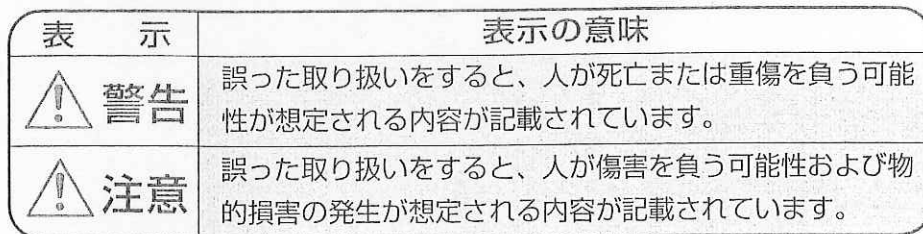 表　示
表示の意味
警告
誤った取り扱いをすると、人が死亡または重傷を負う可能
性が想定される内容が記載されています。
注意
誤った取り扱いをすると、人が傷害を負う可能性および物
的損害の発生が想定される内容が記載されています。